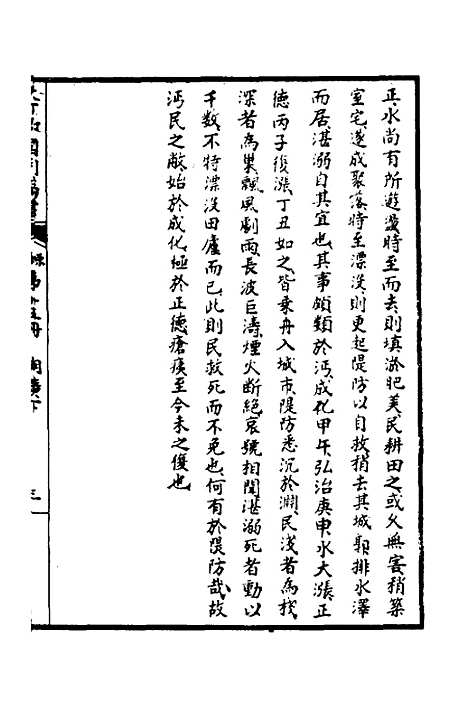 正水尚有所遊盪時至而去則填淤肥美民耕田之或久無害稍築
室宅遂成聚落時至漂沒則更起隄防以自救稍去其城郭排水澤
而居湛溺自其宜也其事頗類於沔成化甲午弘治庚申水大漲正
德丙子復漲丁丑如之皆乗舟入城市隄防悉沉於淵民淺者為棧
深者為巢飄風劇雨長波巨濤煙火斷絕哀號相聞湛溺死者動以
千數不特漂沒田廬而已此則民救死而不免也何有於隄防哉故
沔民之敝始於成化極於正德瘡痍至今未之復也
湖廣下
三